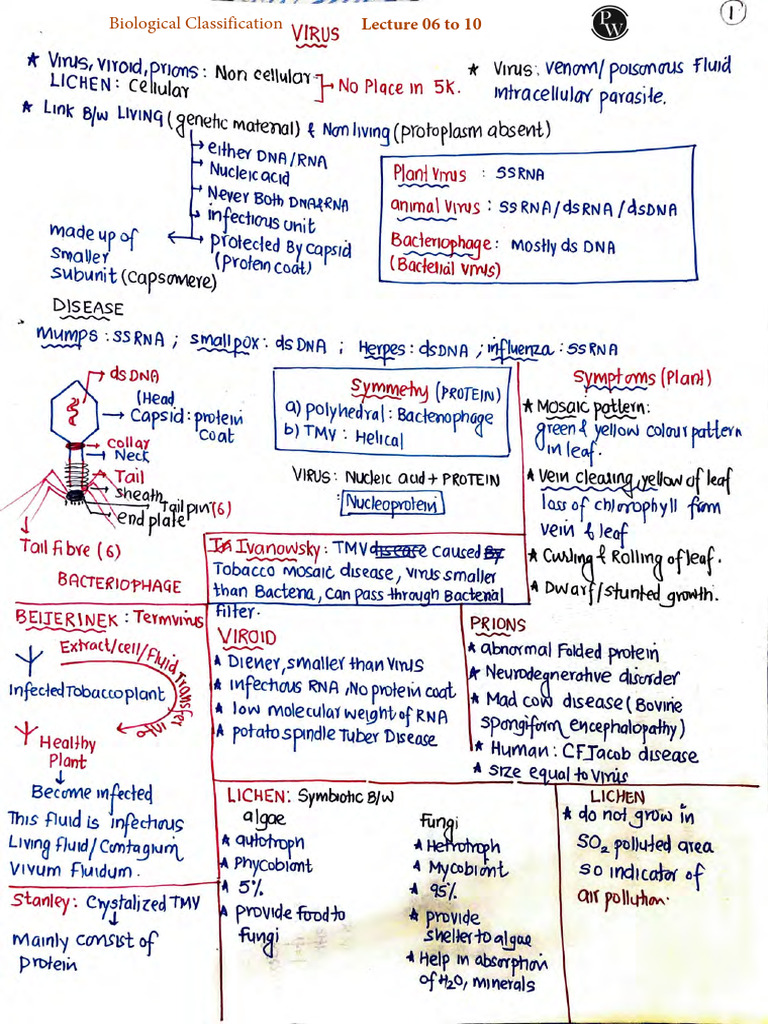 Biological Classification Lecture 06 to 10
PW
1
VIRUS
* Virus, viroid, prions : Non cellular
LICHEN : Cellular
No Place in 5K.
* Virus : venom/ poisonous fluid
intracellular parasite.
* Link B/w LIVING (genetic material) & Non living (protoplasm absent)
either DNA/RNA
Nucleic acid
Never Both DNA&RNA
infectious unit
protected By capsid
(protein coat)
made up of
smaller
subunit (capsomere)
Plant Virus : SSRNA
animal virus : SSRNA/dsRNA/dsDNA
Bacteriophage : mostly ds DNA
(Bacterial virus)
DISEASE
Mumps : SSRNA ; smallpox : dsDNA ; Herpes : dsDNA ; influenza : SSRNA
dsDNA
(Head
Capsid : protein
coat
collar
Neck
Tail
sheath
Tail pin (6)
end plate
Tail fibre (6)
BACTERIOPHAGE
Symmetry (PROTEIN)
a) polyhedral : Bacteriophage
b) TMV : Helical
VIRUS : Nucleic acid + PROTEIN
: Nucleoprotein
Symptoms (Plant)
* Mosaic pattern :
green & yellow colour pattern
in leaf.
* Vein clearing, yellow of leaf
loss of chlorophyll from
vein & leaf
* Curling & Rolling of leaf.
* Dwarf/stunted growth.
Ivanowsky : TMV disease caused By
Tobacco mosaic disease, virus smaller
than Bacteria, Can pass through Bacterial
filter.
BEIJERINEK : Termvirus
Extract/cell/fluid
Transfer
into
Infected Tobacco plant
Healthy
Plant
Become infected
This fluid is infectious
Living fluid/ Contagium
Vivum Fluidum.
Stanley : Crystalized TMV
Mainly consist of
protein
VIROID
* Diener, smaller than virus
* infectious RNA, No protein coat
* low molecular weight of RNA
* potato spindle Tuber Disease
PRIONS
* abnormal Folded protein
* Neurodegenerative disorder
* Mad cow disease (Bovine
spongiform encephalopathy)
* Human : CF Jacob disease
* size equal to virus
LICHEN : Symbiotic B/w
algae
* autotroph
* Phycobiont
* 5%
* provide food to
fungi
Fungi
* Hetrotroph
* Mycobiont
* 95%
* provide
shelter to algae
* Help in absorption
of H2O, minerals
LICHEN
* do not grow in
SO2 polluted area
so indicator of
air pollution.